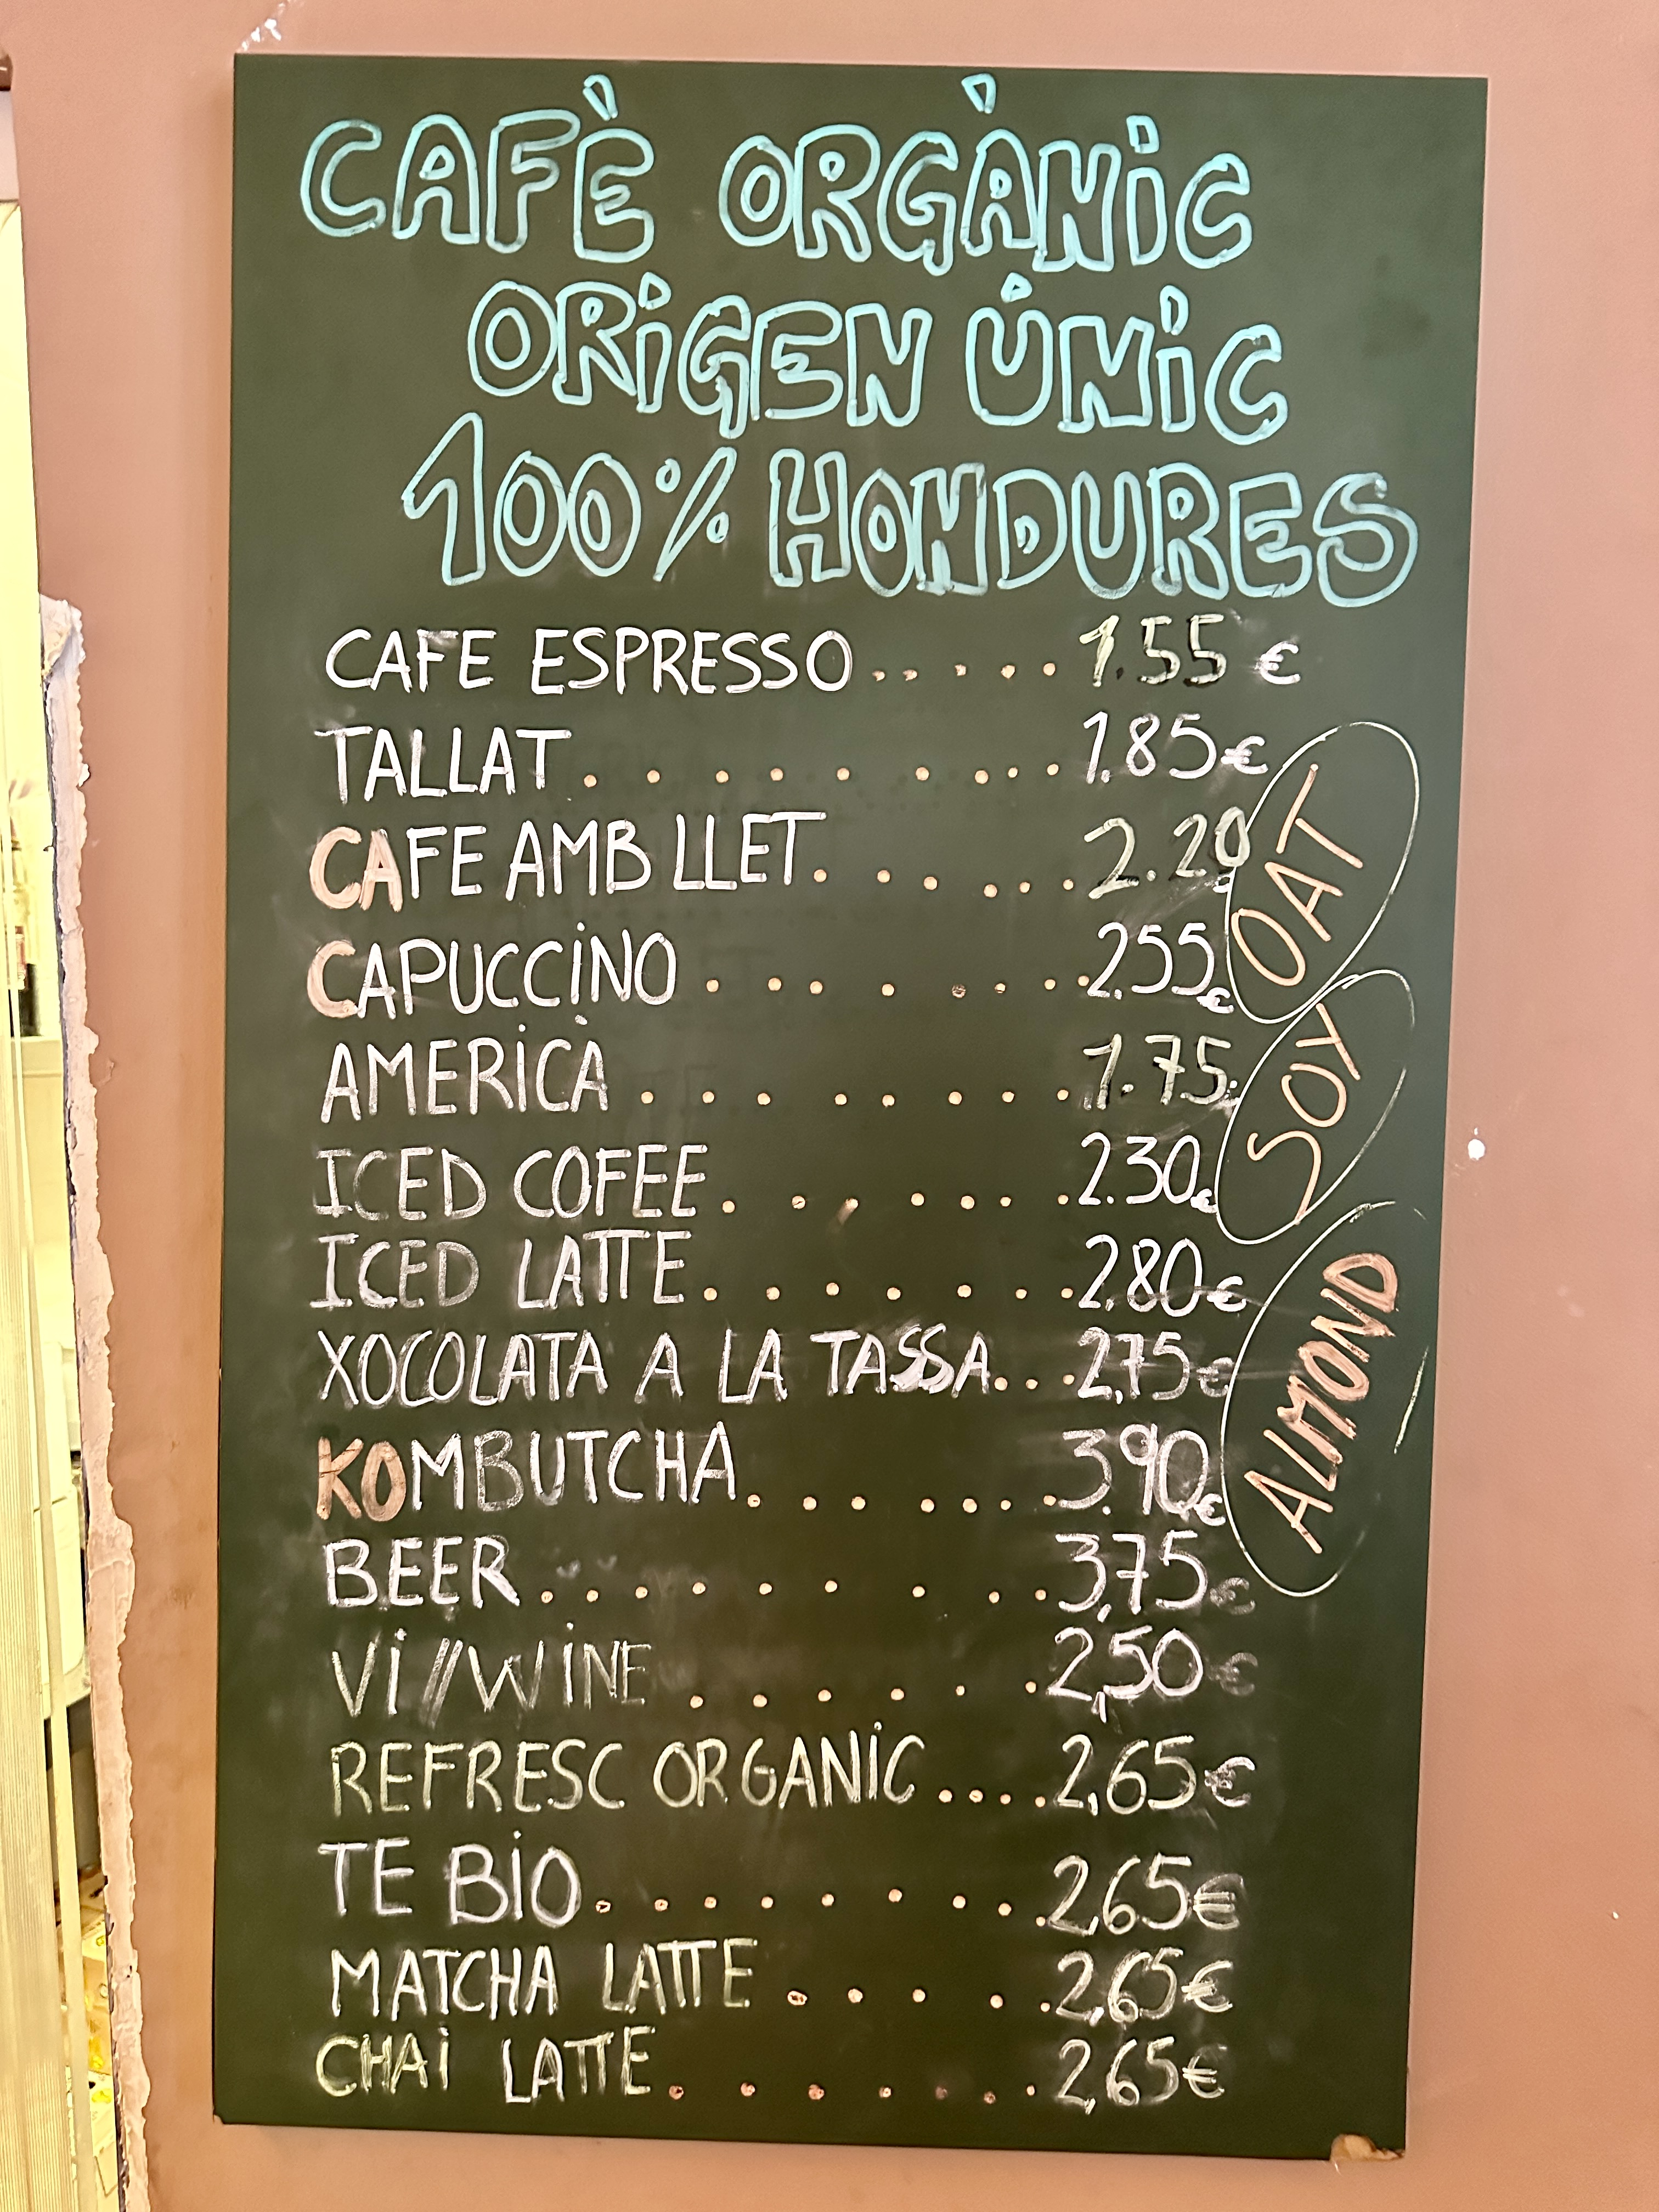 CAFÈ ORGÀNIC
ORIGEN ÚNIC
100% HONDURES
CAFE ESPRESSO..... 1.55 €
TALLAT......... 1.85€
CAFE AMB LLET....... 2.20
CAPUCCINO ........ 2.55€
AMERICÀ ......... 1.75
ICED COFEE....... 2.30€
ICED LATTE........ 2.80€
XOCOLATA A LA TASSA.... 2,75€
KOMBUTCHA........ 3.90€
BEER.......... 3,75€
Vi//WiNE ...... 2,50€
REFRESC ORGANiC.... 2,65€
TE BiO......... 2,65€
MATCHA LATTE ..... 2,65€
CHAi LATTE....... 2,65€
OAT
SOY
ALMOND